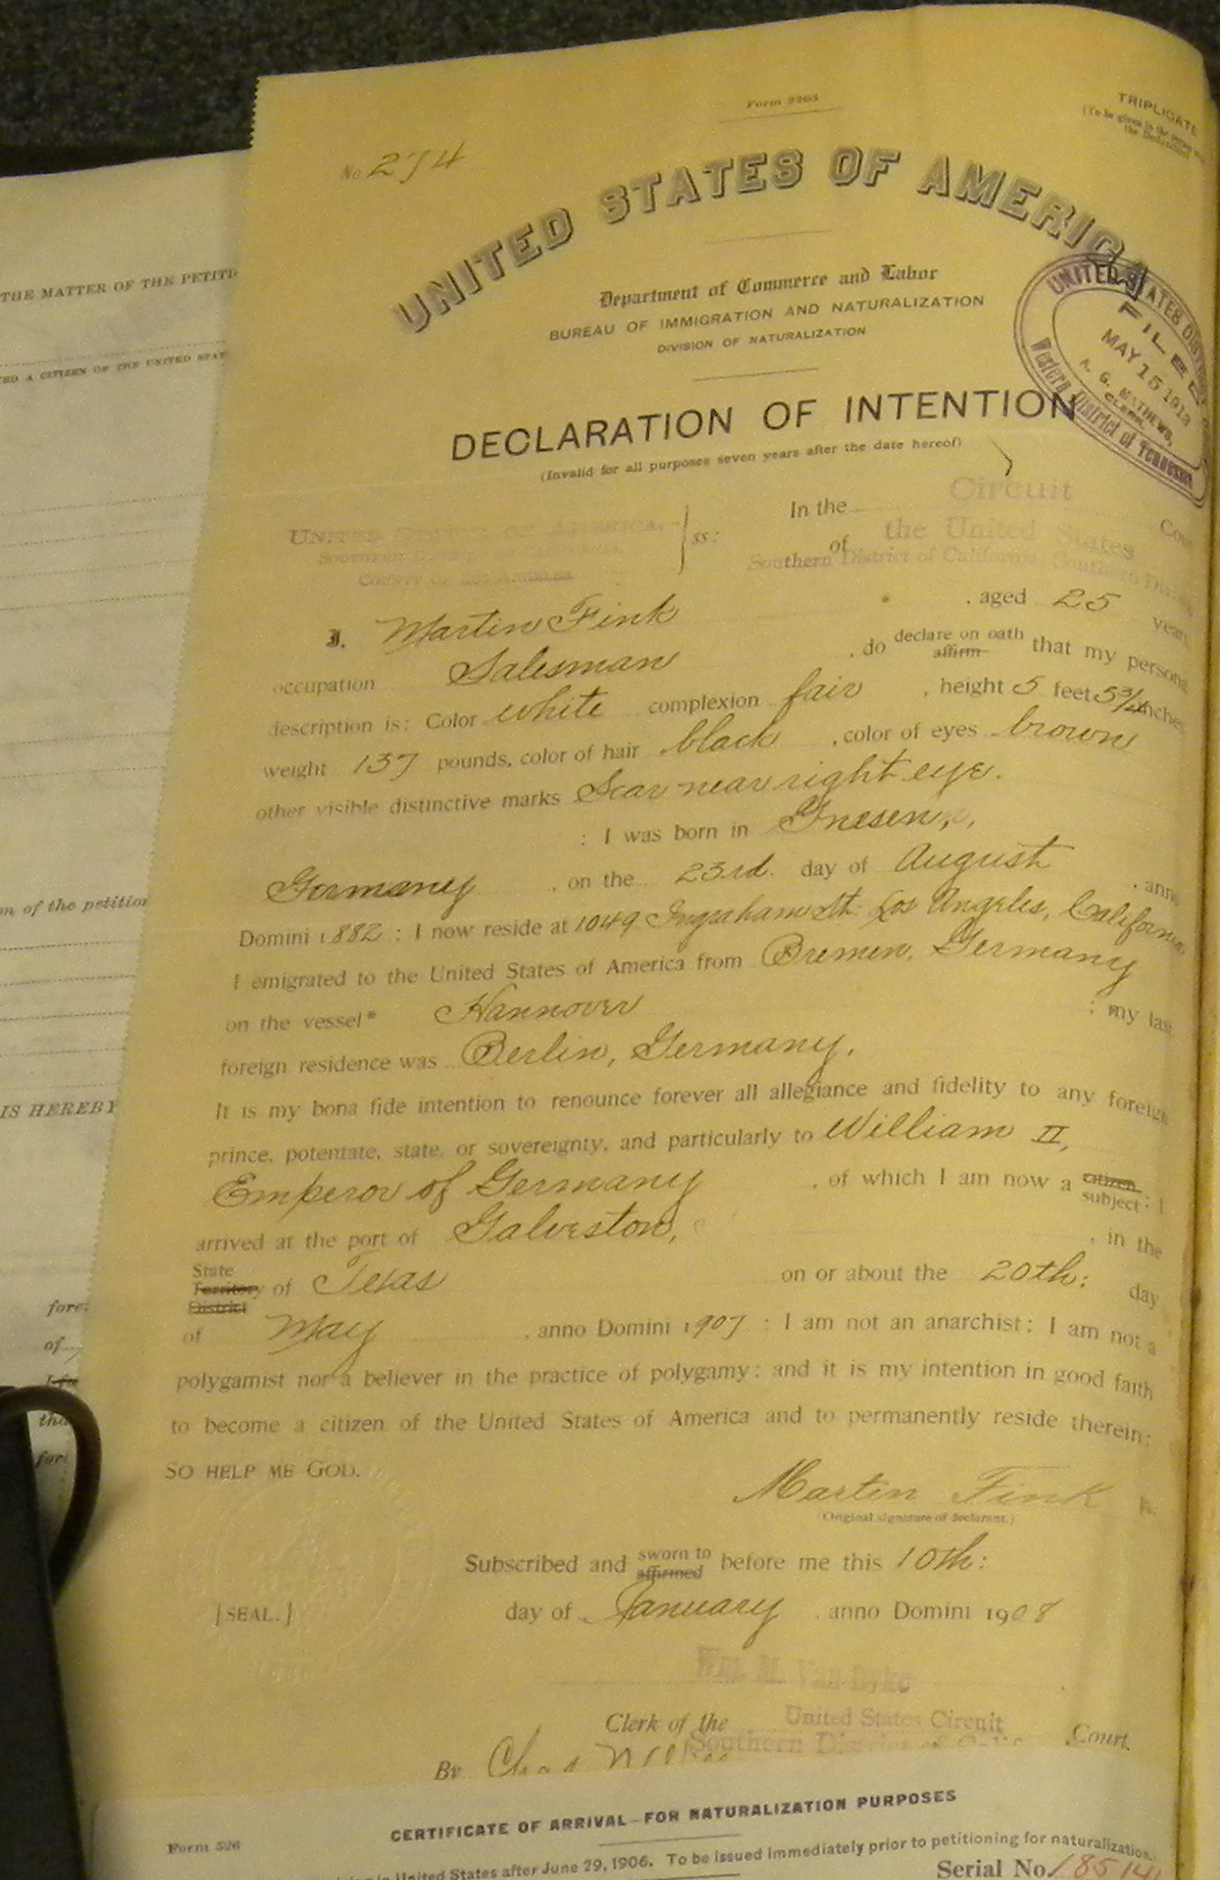 Form 2203
TRIPLICATE
(To be given to the person
the Declaration)
No. 274
UNITED STATES OF AMERICA
Department of Commerce and Labor
BUREAU OF IMMIGRATION AND NATURALIZATION
DIVISION OF NATURALIZATION
UNITED STATES DISTRICT
FILED
MAY 15 1913
A. G. MATHEWS,
CLERK.
Western District of Tennessee
DECLARATION OF INTENTION
(Invalid for all purposes seven years after the date hereof)
UNITED STATES OF AMERICA.
COUNTY OF LOS ANGELES
ss:
In the Circuit Cou
of the United States
Southern District of California, Southern Divisi
I, Martin Fink, aged 25 years
occupation Salesman, do declare on oath affirm that my persona
description is: Color white complexion fair, height 5 feet 5 3/4 inches
weight 137 pounds, color of hair black, color of eyes brown
other visible distinctive marks Scar near right eye.
: I was born in Gnesen,
Germany, on the 23rd. day of August, anno
Domini 1882 : I now reside at 1049 Ingraham St. Los Angeles, California
I emigrated to the United States of America from Bremen, Germany
on the vessel* Hannover : my last
foreign residence was Berlin, Germany.
It is my bona fide intention to renounce forever all allegiance and fidelity to any foreign
prince, potentate, state, or sovereignty, and particularly to William II,
Emperor of Germany, of which I am now a citizen subject : I
arrived at the port of Galveston, in the
State Territory District of Texas on or about the 20th: day
of May, anno Domini 1907 : I am not an anarchist: I am not a
polygamist nor a believer in the practice of polygamy: and it is my intention in good faith
to become a citizen of the United States of America and to permanently reside therein:
SO HELP ME GOD.
Martin Fink
(Original signature of declarant.)
Subscribed and sworn to affirmed before me this 10th:
[SEAL.] day of January, anno Domini 1908
Wm. M. Van Dyke
Clerk of the United States Circuit Court.
Southern District of Calif
By Chas
CERTIFICATE OF ARRIVAL—FOR NATURALIZATION PURPOSES
Form 526
in United States after June 29, 1906. To be issued immediately prior to petitioning for naturalization.
Serial No. 18514
THE MATTER OF THE PETITI
ED A CITIZEN OF THE UNITED STAT
n of the petition
IS HEREBY
fore
of
tha
for